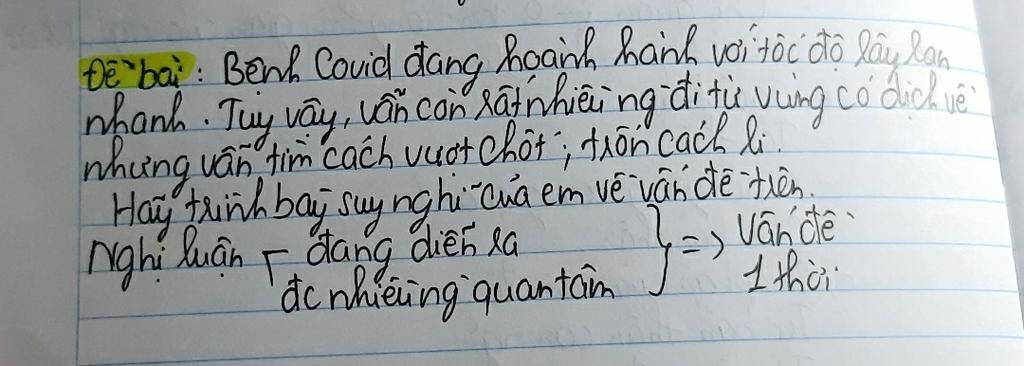 Đề bài: Bệnh Covid đang hoành hành với tốc độ lây lan
nhanh. Tuy vậy, vẫn còn rất nhiều ng đi từ vùng có dịch về
nhưng vẫn tìm cách vượt chốt, trốn cách li.
Hãy trình bày suy nghĩ của em về vấn đề trên.
Nghị luận - đang diễn ra } => Vấn đề
đc nhiều ng quan tâm 1 thời